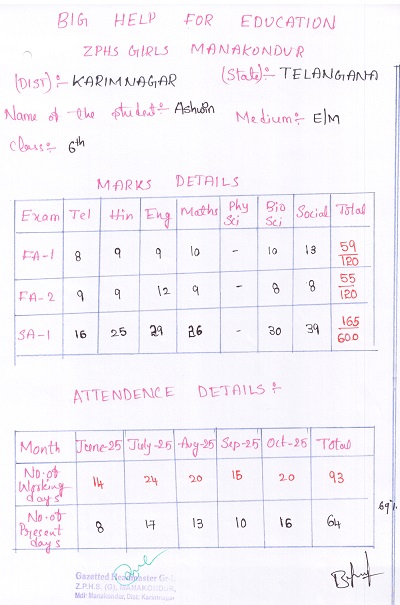 BIG HELP FOR EDUCATION
ZPHS GIRLS MANAKONDUR
(DIST) :- KARIMNAGAR (State) :- TELANGANA
Name of the student :- Ashwin Medium :- E/M
Class :- 6th
MARKS DETAILS
Exam Tel Hin Eng Maths Phy Sci Bio Sci Social Total
FA-1 8 9 9 10 - 10 13 59/120
FA-2 9 9 12 9 - 8 8 55/120
SA-1 16 25 29 26 - 30 39 165/600
ATTENDENCE DETAILS :-
Month June-25 July-25 Aug-25 Sep-25 Oct-25 Total
No. of Working days 14 24 20 15 20 93
No. of Present days 8 17 13 10 16 64
69%
Gazetted Headmaster Gr-II
Z.P.H.S. (G), MANAKONDUR,
Mdl: Manakondur, Dist. Karimnagar